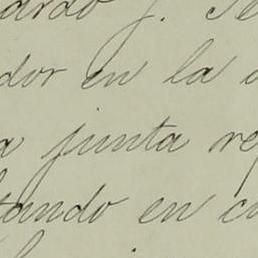 ardo J. Te
dor en la
a junta re
tando en c